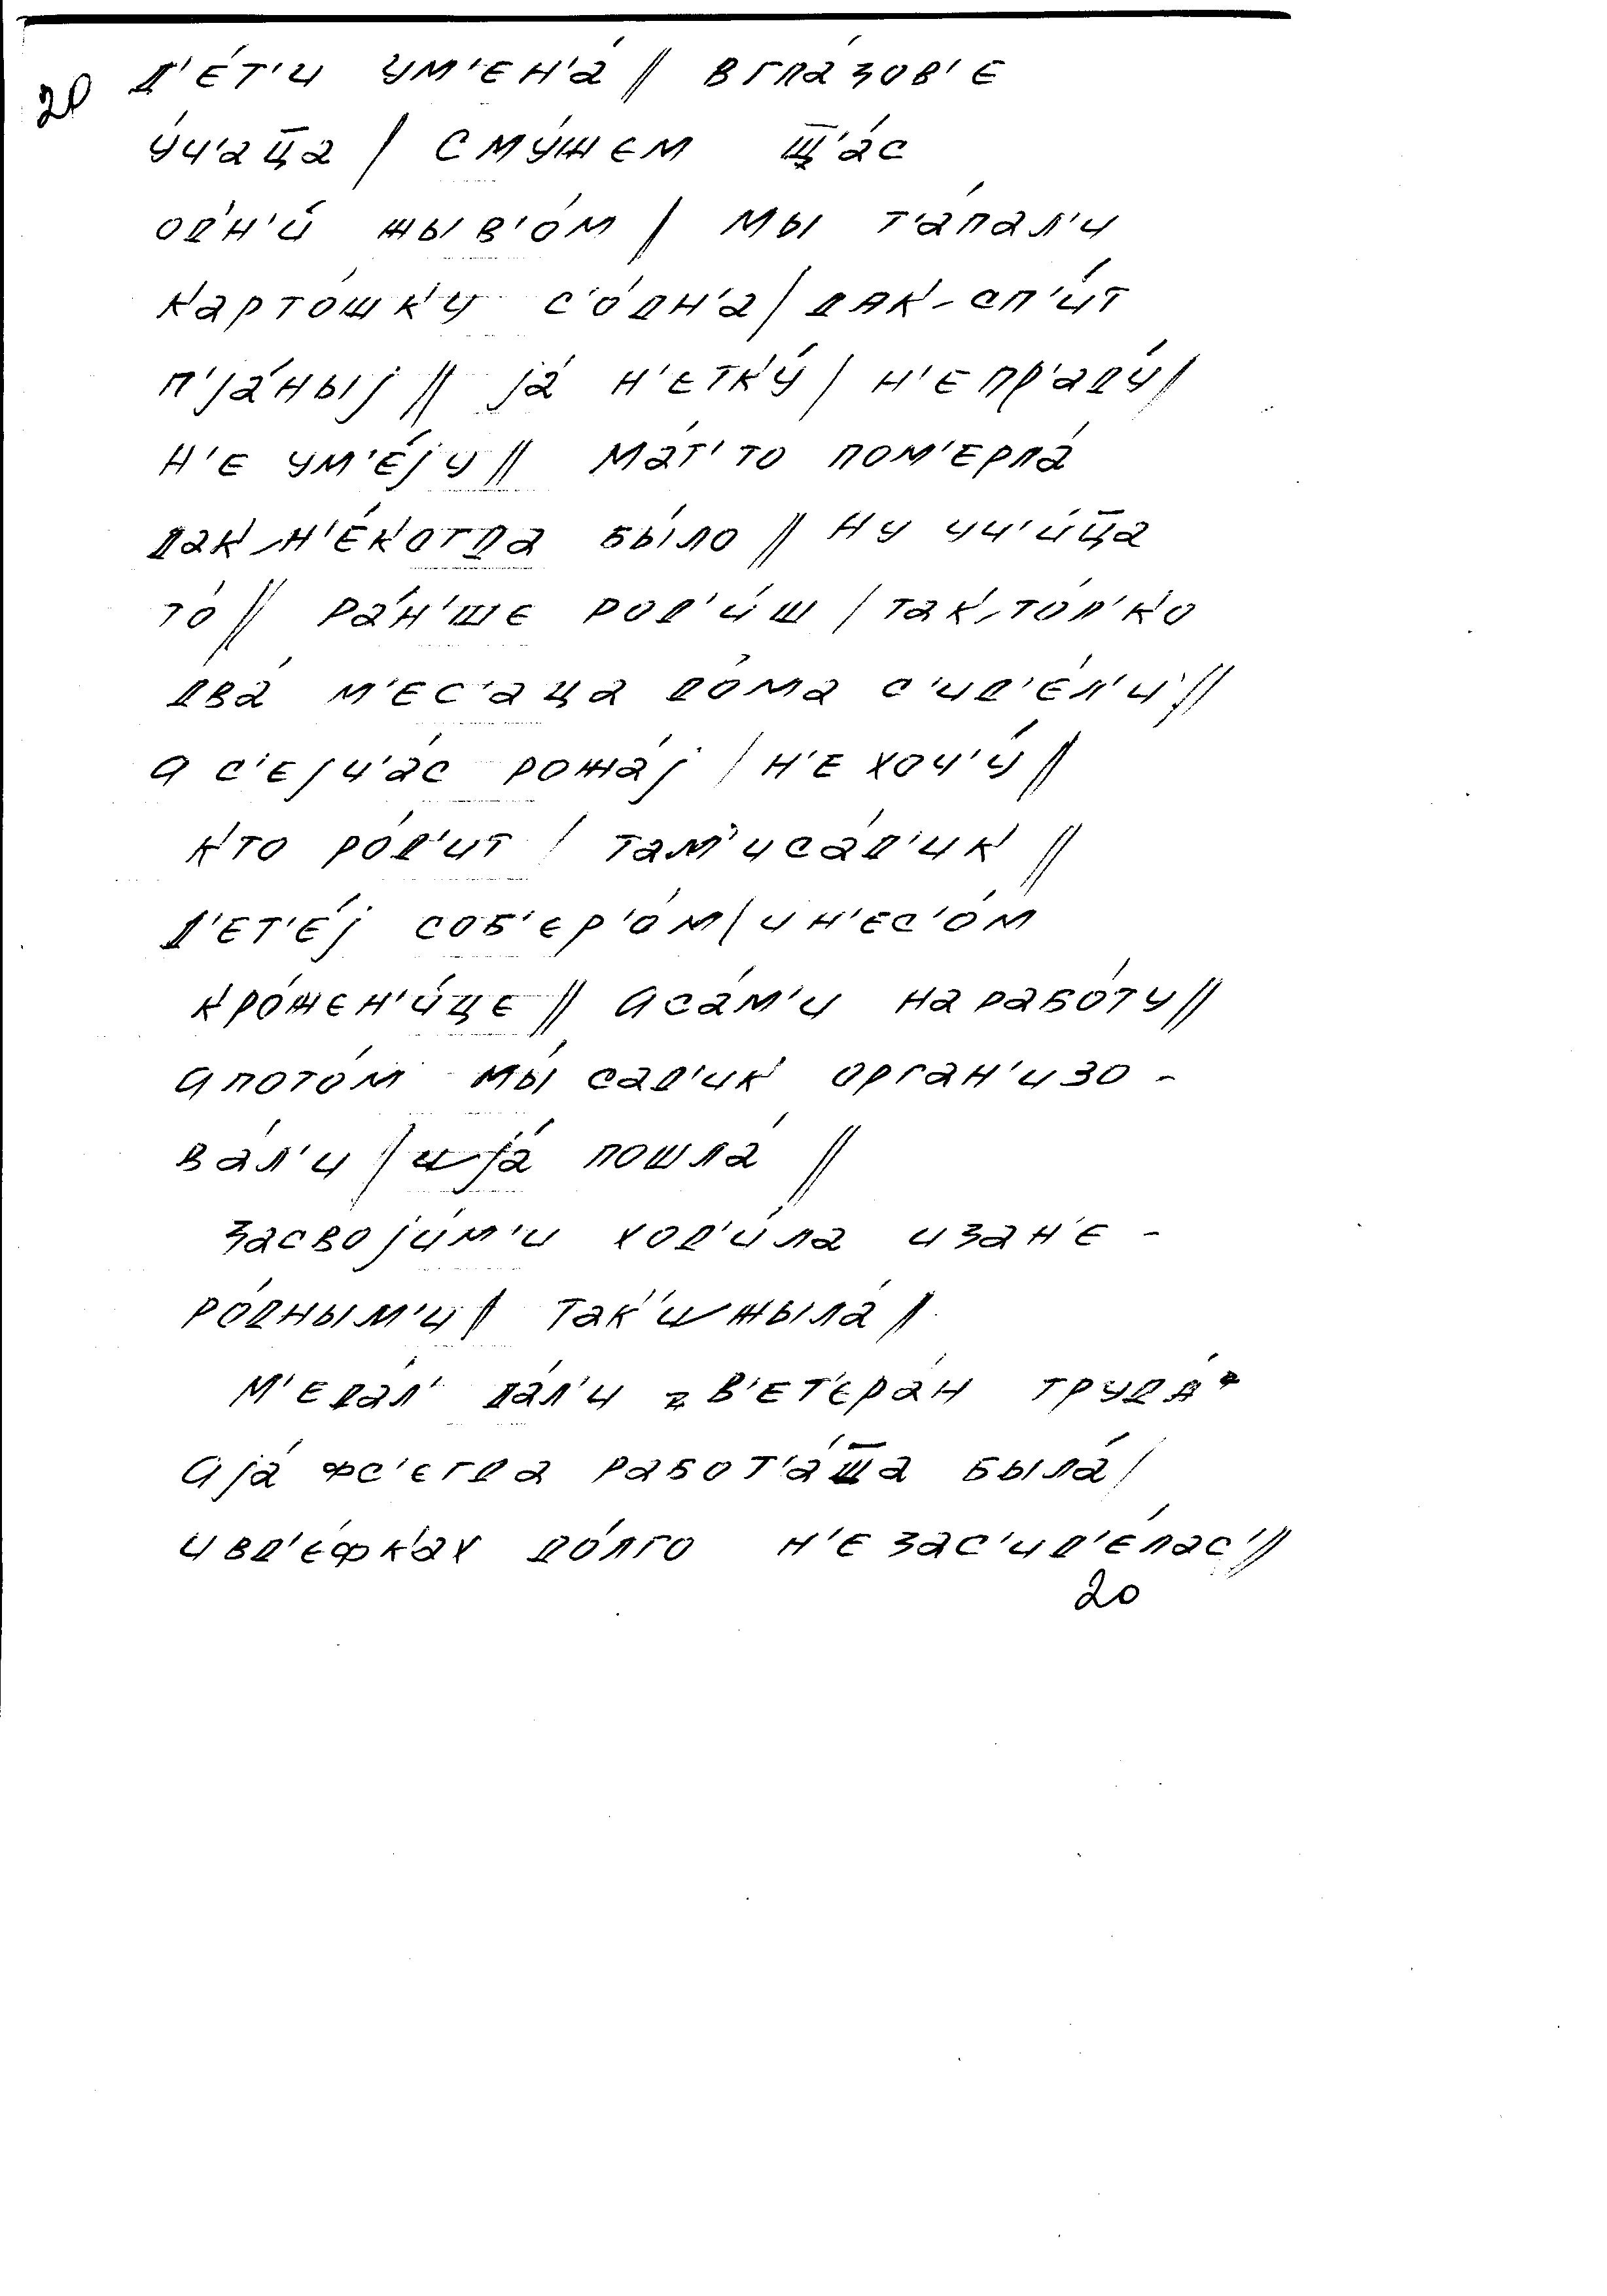 20 д'е́т'и ум'ен'а́ // в гла́зов'е
у́ч'ац̄а / с му́жем щ̄'а́с
одн'и́ жыв'о́м / мы т'а́пал'и
карто́шку с'о́дн'а / дак-сп'и́т
п'jа́ныj // jа́ н'е тку́ / н'е пр'аду́ /
н'е ум'е́jу // ма́т' то пом'ерла́
дак н'е́когда бы́ло // ну уч'и́ц̄а
то // ра́н'ше род'и́ш / так, то́л'ко
два́ м'ес'аца до́ма с'ид'е́л'и //
а с'еjч'а́с рожа́j / н'е хоч'у́ //
кто ро́д'ит / там' и са́д'ик //
д'ет'е́j соб'ер'о́м / и н'ес'о́м
к ро́жен'и́це // а са́м'и на рабо́ту //
а пото́м мы́ сад'ик орган'изо-
ва́л'и / и jа́ пошла́ //
за своjи́м'и ход'и́ла и за н'е-
ро́дным'и // так'и жыла́ //
м'еда́л' да́л'и "в'ет'ера́н труда́"
а jа́ фс'егда работ'а́ш̄а была́ /
и в д'е́фках до́лго н'е зас'ид'е́лас' //
20